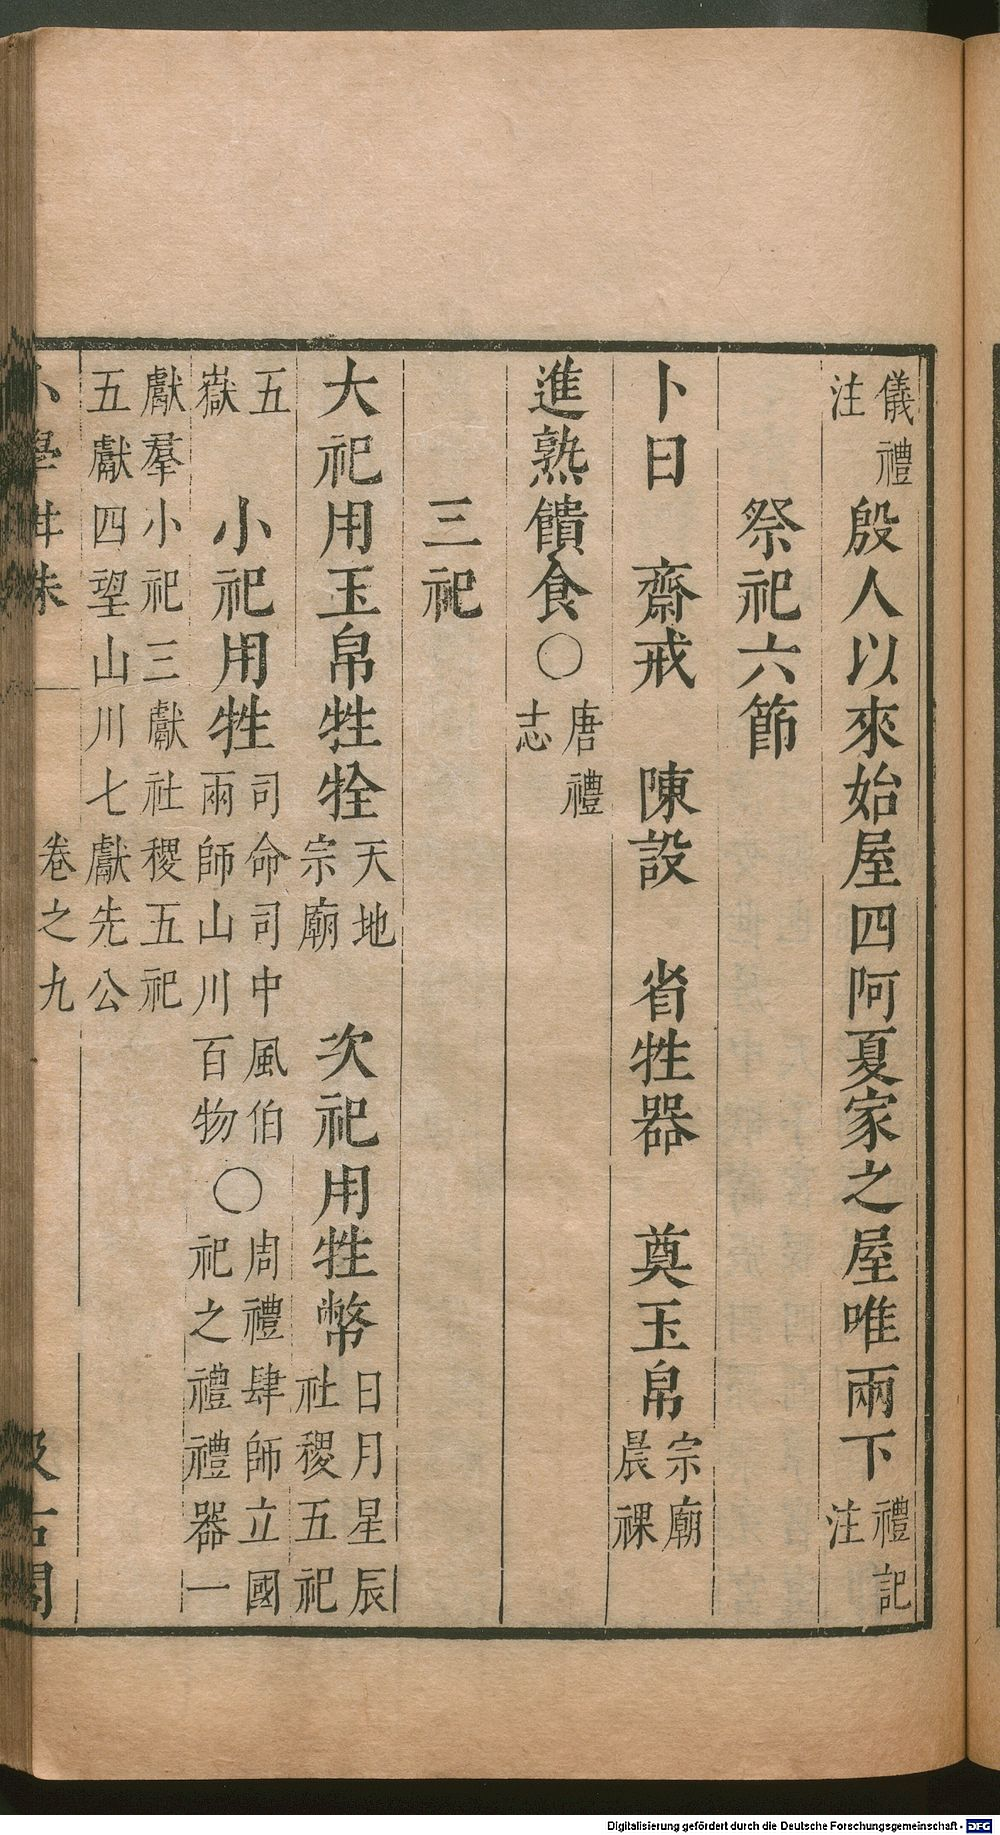 儀禮注殷人以來始屋四阿夏家之屋唯兩下禮記注
祭祀六節
卜日　齋戒　陳設　省牲器　奠玉帛宗廟晨祼
進熟饋食○唐禮志
三祀
大祀用玉帛牲牷天地宗廟　次祀用牲幣日月星辰社稷五祀
五嶽　小祀用牲司命司中風伯雨師山川百物○周禮肆師立國祀之禮禮器一
獻羣小祀三獻社稷五祀五獻四望山川七獻先公
小學卷之九
Digitalisierung gefördert durch die Deutsche Forschungsgemeinschaft - DFG